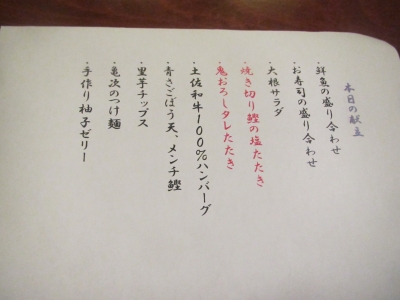 本日の献立
・鮮魚の盛り合わせ
・お寿司の盛り合わせ
・大根サラダ
・焼き切り鰹の塩たたき
・鬼おろしタレたたき
・土佐和牛100%ハンバーグ
・青さごぼう天、メンチ鰹
・里芋チップス
・亀次のつけ麺
・手作り柚子ゼリー